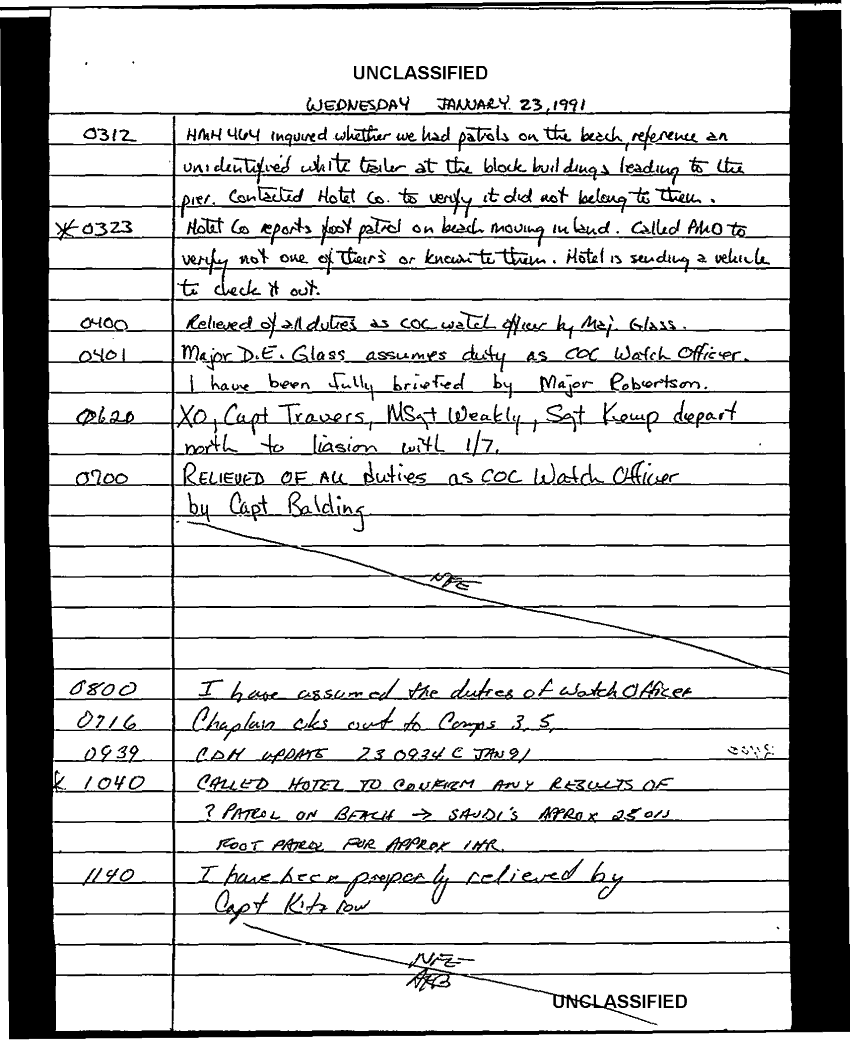 UNCLASSIFIED
WEDNESDAY JANUARY 23, 1991
0312 HMH 464 inquired whether we had patrols on the beach, reference an
unidentified white trailer at the block buildings leading to the
pier. Contacted Hotel Co. to verify it did not belong to them.
* 0323 Hotel Co reports foot patrol on beach moving inland. Called PMO to
verify not one of theirs or known to them. Hotel is sending a vehicle
to check it out.
0400 Relieved of all duties as COC watch officer by Maj. Glass.
0401 Major D.E. Glass assumes duty as COC Watch Officer.
I have been fully briefed by Major Robertson.
0620 XO, Capt Travers, MSgt Weakly, Sgt Kemp depart
north to liasion with 1/7.
0700 RELIEVED OF ALL duties as COC Watch Officer
by Capt Balding
NFE
0800 I have assumed the duties of Watch Officer
0716 Chaplain cks out to Camps 3, 5,
0939 CDH UPDATE 23 0934 C JAN 91
* 1040 CALLED HOTEL TO CONFIRM ANY RESULTS OF
? PATROL ON BEACH → SAUDI'S APPROX 25 ON
FOOT PATROL FOR APPROX 1 HR.
1140 I have been properly relieved by
Capt Kitzlow
NFE
AFB
UNCLASSIFIED